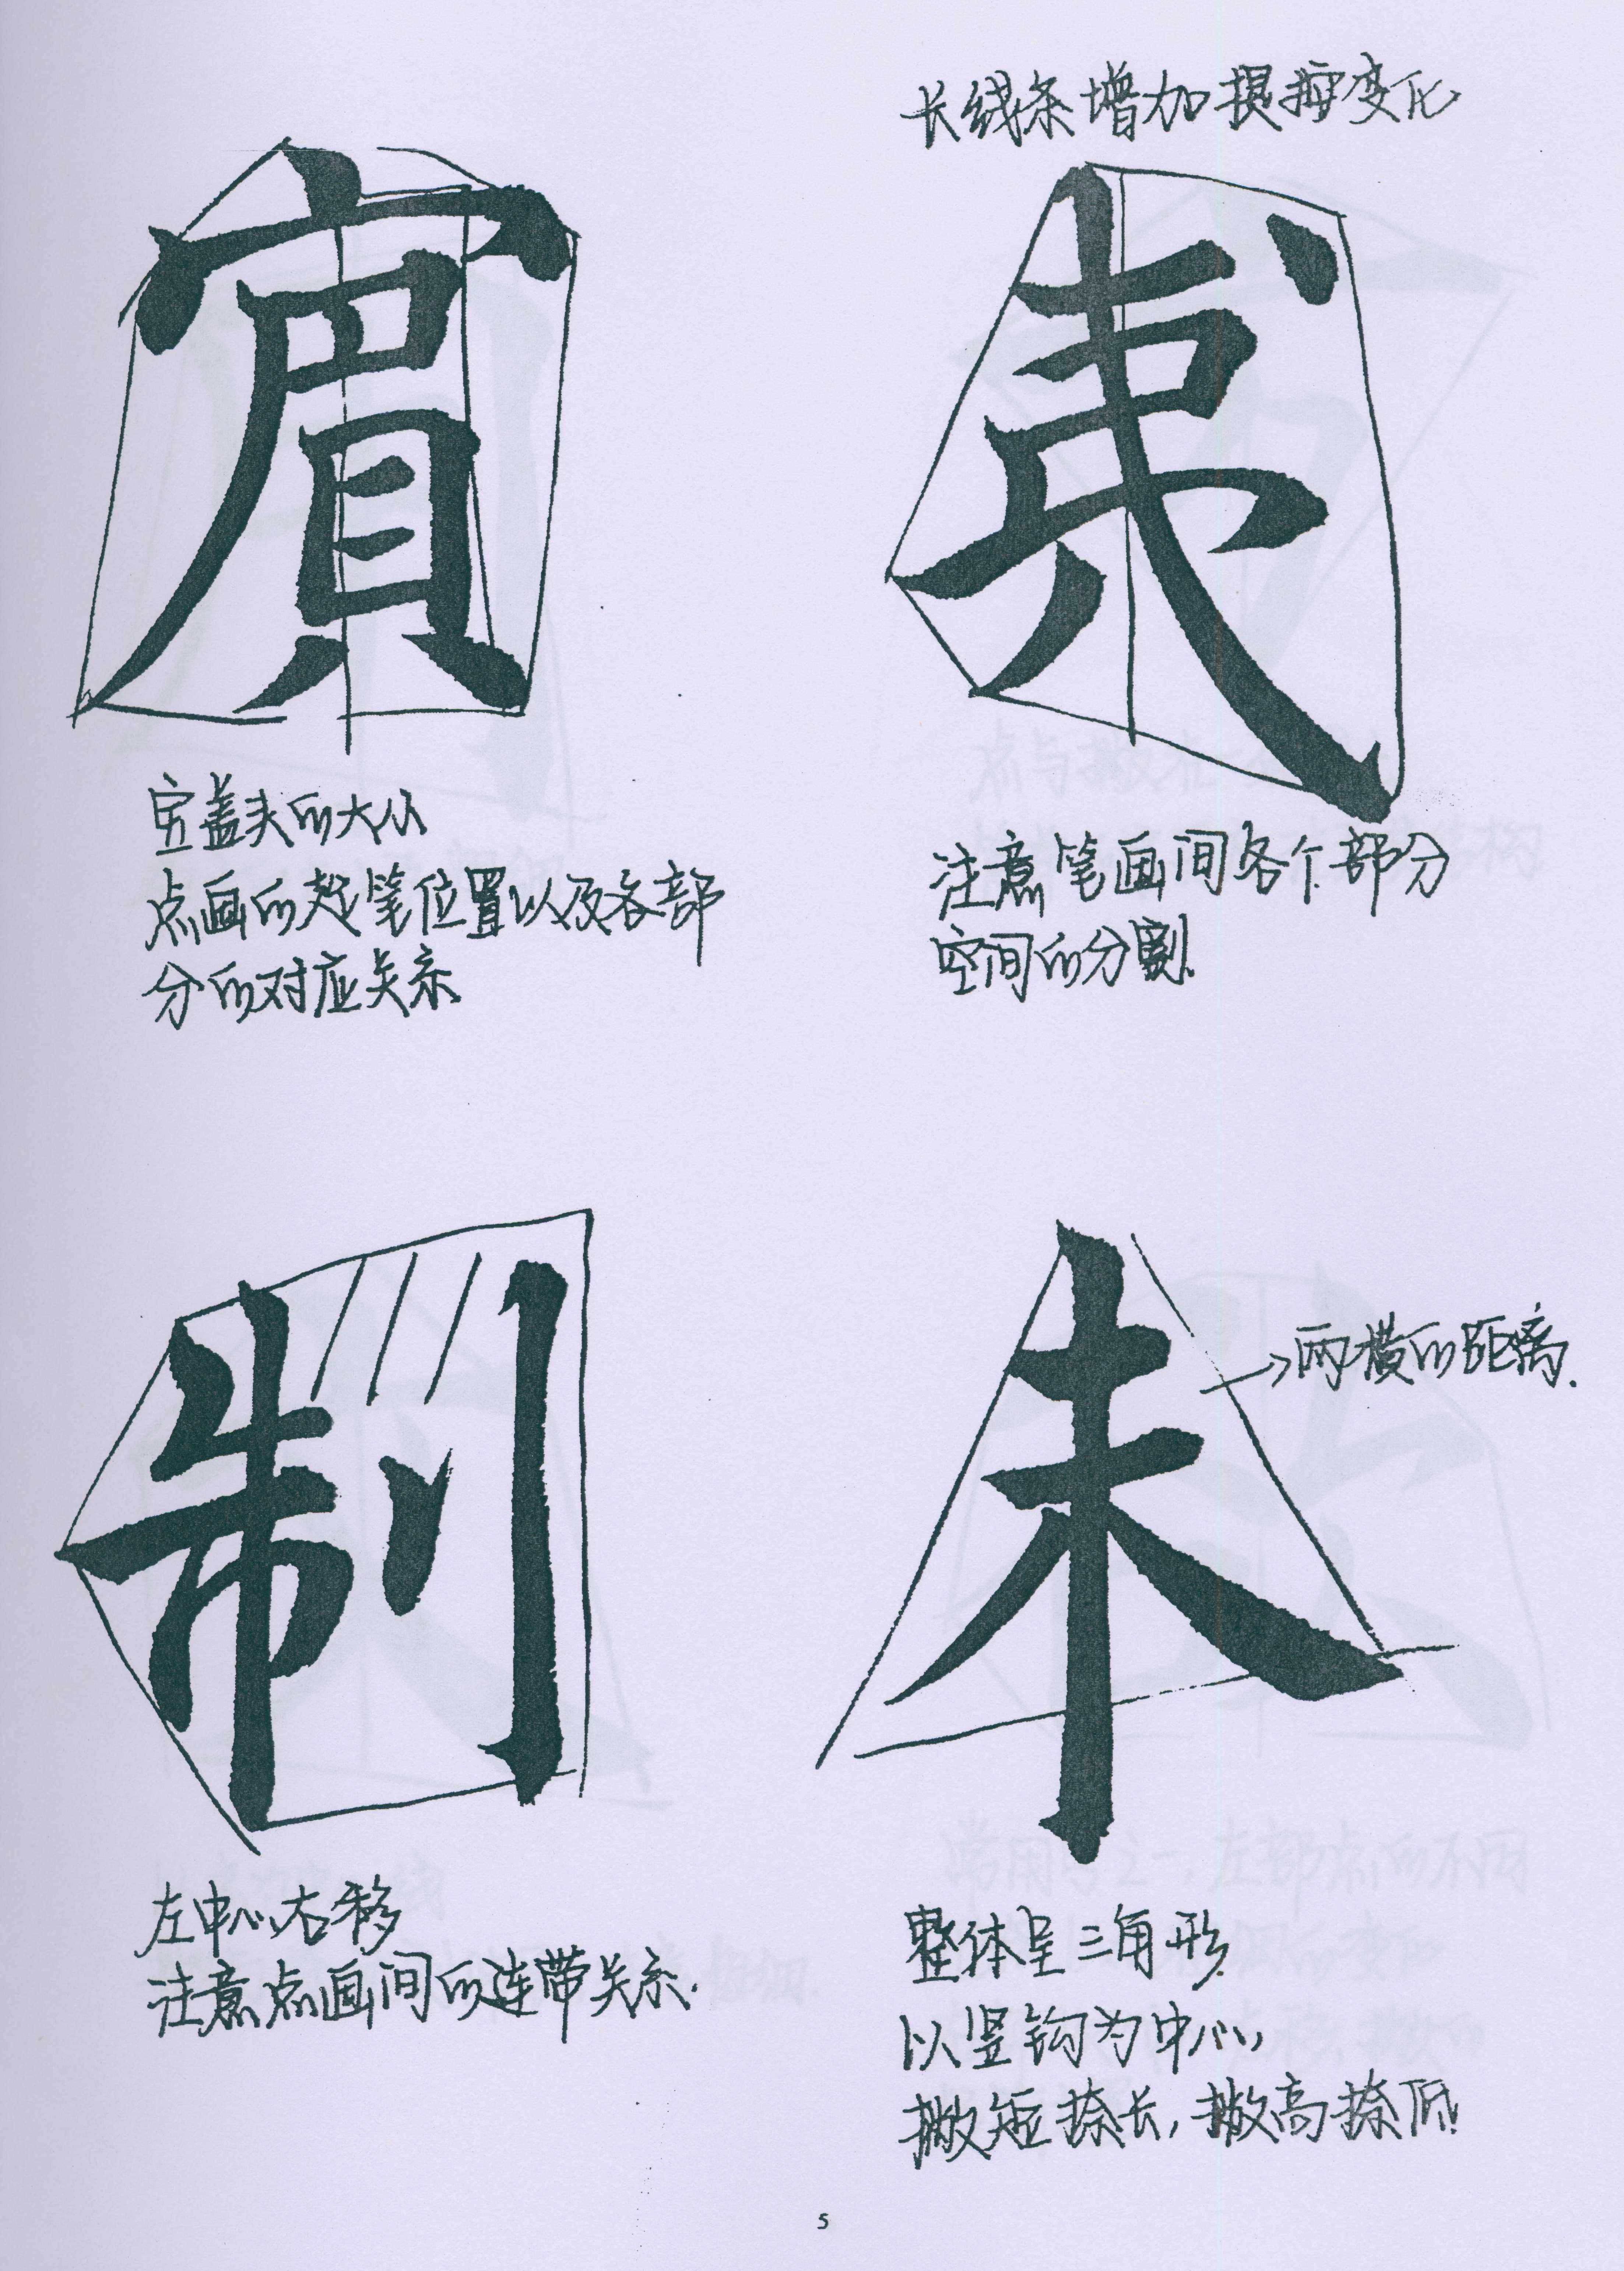 长线条增加提按变化
宝盖头的大小
点画的起笔位置以及各部
分的对应关系
注意笔画间各个部分
空间的分割.
制
未
两横的距离.
左中心右移
注意点画间的连带关系.
整体呈三角形
以竖钩为中心,
撇短捺长,撇高捺低.
5